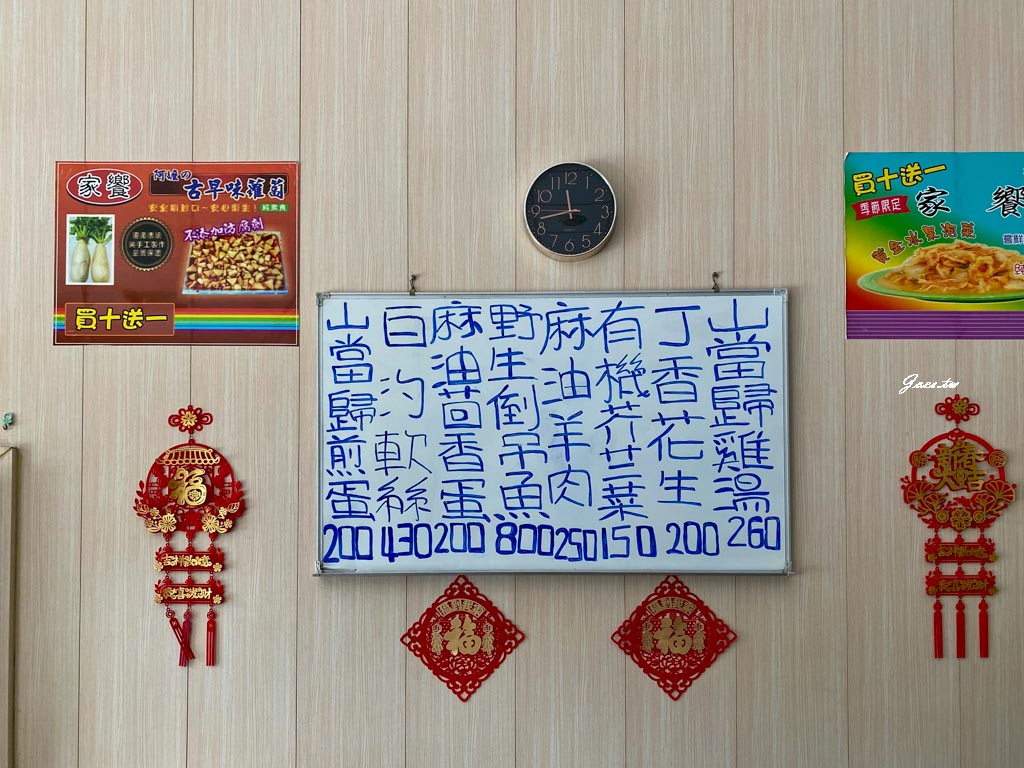 家饗
阿嬤の
古早味蘿蔔
純素食
不添加防腐劑
買十送一
12
11
1
10
2
9
3
8
4
7
5
6
買十送一
季節限定
家 饗
黃金水果泡菜
Jaes.tw
山當歸雞湯 260
丁香花生 200
有機芥菜 150
麻油羊肉 250
野生倒吊魚 800
麻油茴香蛋 200
白汋軟絲 430
山當歸煎蛋 200
福
福
福